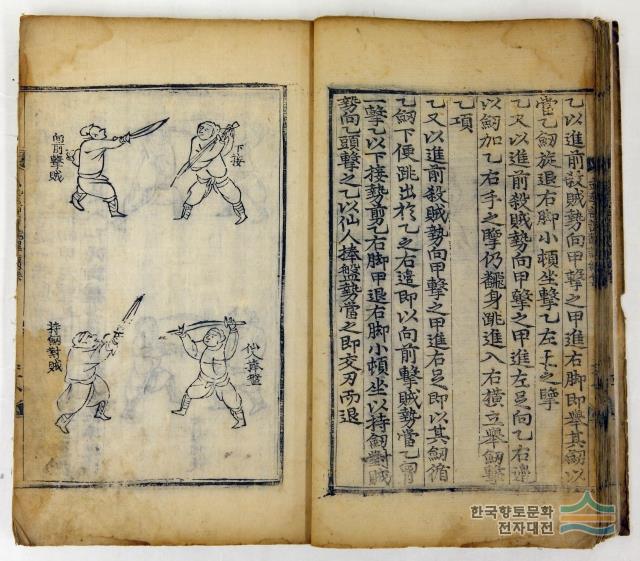 乙以進前殺賊勢向甲擊之甲進右脚即舉其劒以
當乙劒旋退右脚小頓坐擊乙左手之
乙又以進前殺賊勢向甲擊之甲進左足向乙右邊
以劒加乙右手之仍飜身跳進入右橫立舉劒擊
乙項
乙又以進前殺賊勢向甲擊之甲進右足即以其劒循
乙劒下便跳出於乙之右邊即以向前擊賊勢當乙胷
一擊乙以下接勢剪乙右脚甲退右脚小頓坐以持劒對賊
勢向乙頭擊之乙以仙人捧盤勢當之即交刃而退
下接
向前擊賊
仙人捧盤
持劒對賊
한국향토문화
전자대전